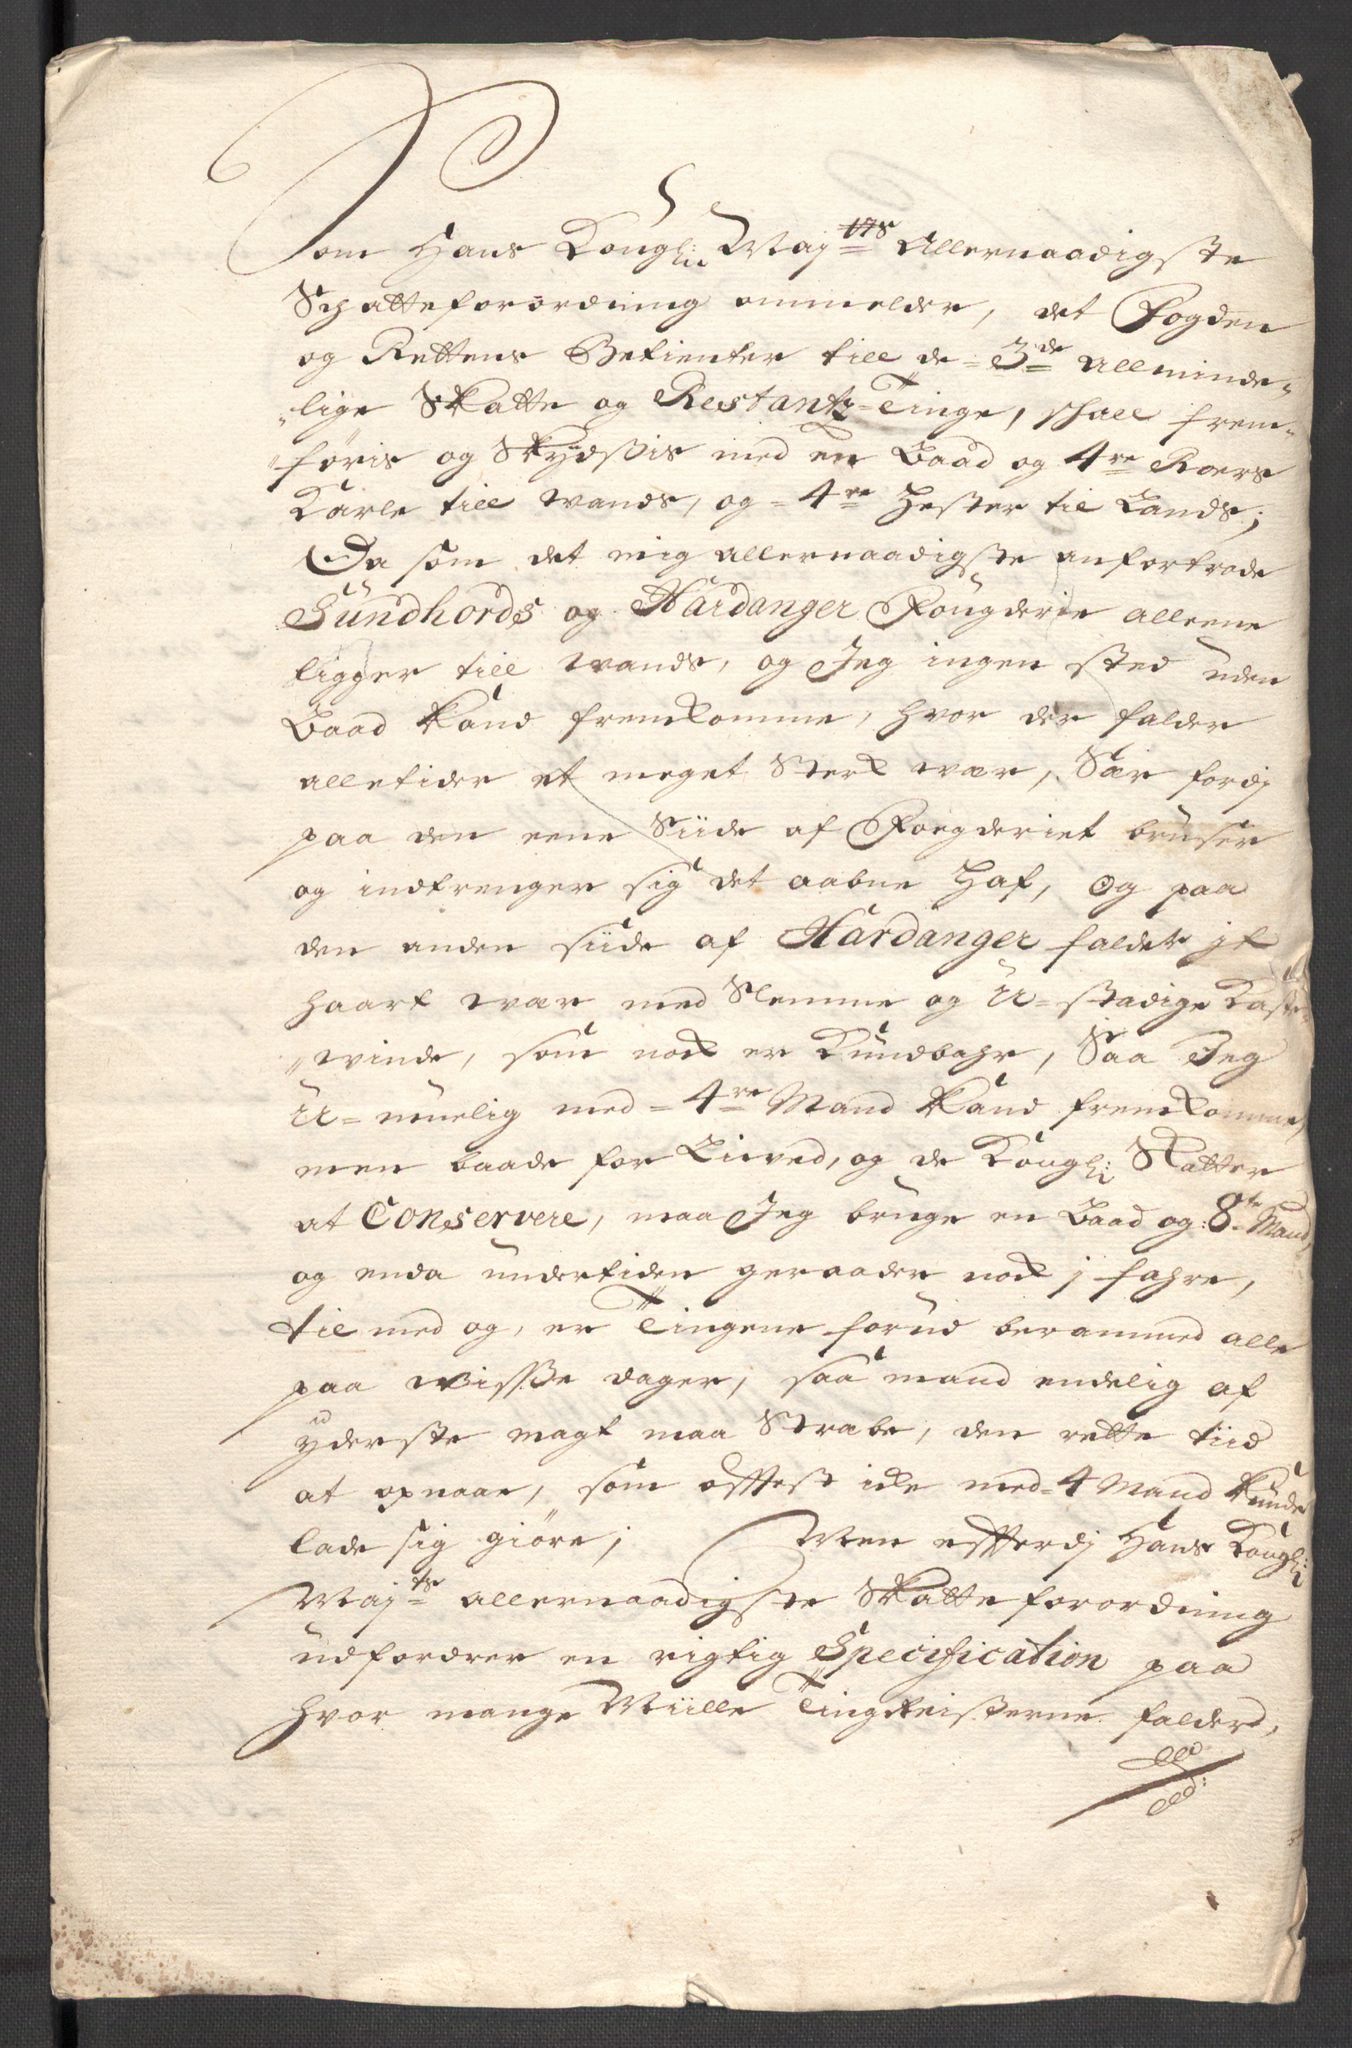 Som Hans Kongl: Maj:ts Allernaadigste
Schatteforordning ommelder, det Fogden
og Rettens Betienter till de 3de Allminde-
lige Skatte og Restantz-Tinge, schall frem-
føris og Skÿdsßis med en Baad og 4re Roers
Karle till wands, og 4re Hester til Lands;
Da som det mig allernaadigste anfortrode
Sundhords og Hardanger Fougderie alleene
ligger till wands, og Jeg ingen sted uden
Baad kand fremkomme, hvor der falder
alletider et meget sterk wær, Sær fordj
paa den eene Siide af Foegderiet bruser
og indtrenger sig det aabne Haf, og paa
den anden siide af Hardanger falder jt
haart wær med Slemme og U-stadige Kaste-
winde, som nok er Kundbahr, Saa Jeg
U-muelig med 4re Mand kand fremkomme,
men baade for Lived, og de Kongl: Skatter
at Conservere, maa Jeg bruge en Baad og 8te Mand,
og enda undertiden geraader nok j fahre,
til med og, er Tingene forud berammed alle
paa wisße dager, saa mand endelig af
yderste magt maa Strabe, den rette tiid
at opnaae, som offtest icke med 4 Mand kunde
lade sig giøre; Men efterdj Hans Kongl:
Maj:ts allernaadigste Skatte forordning
udfordrer en rigtig Specification paa
hvor mange Miille Tingreiserne falder,